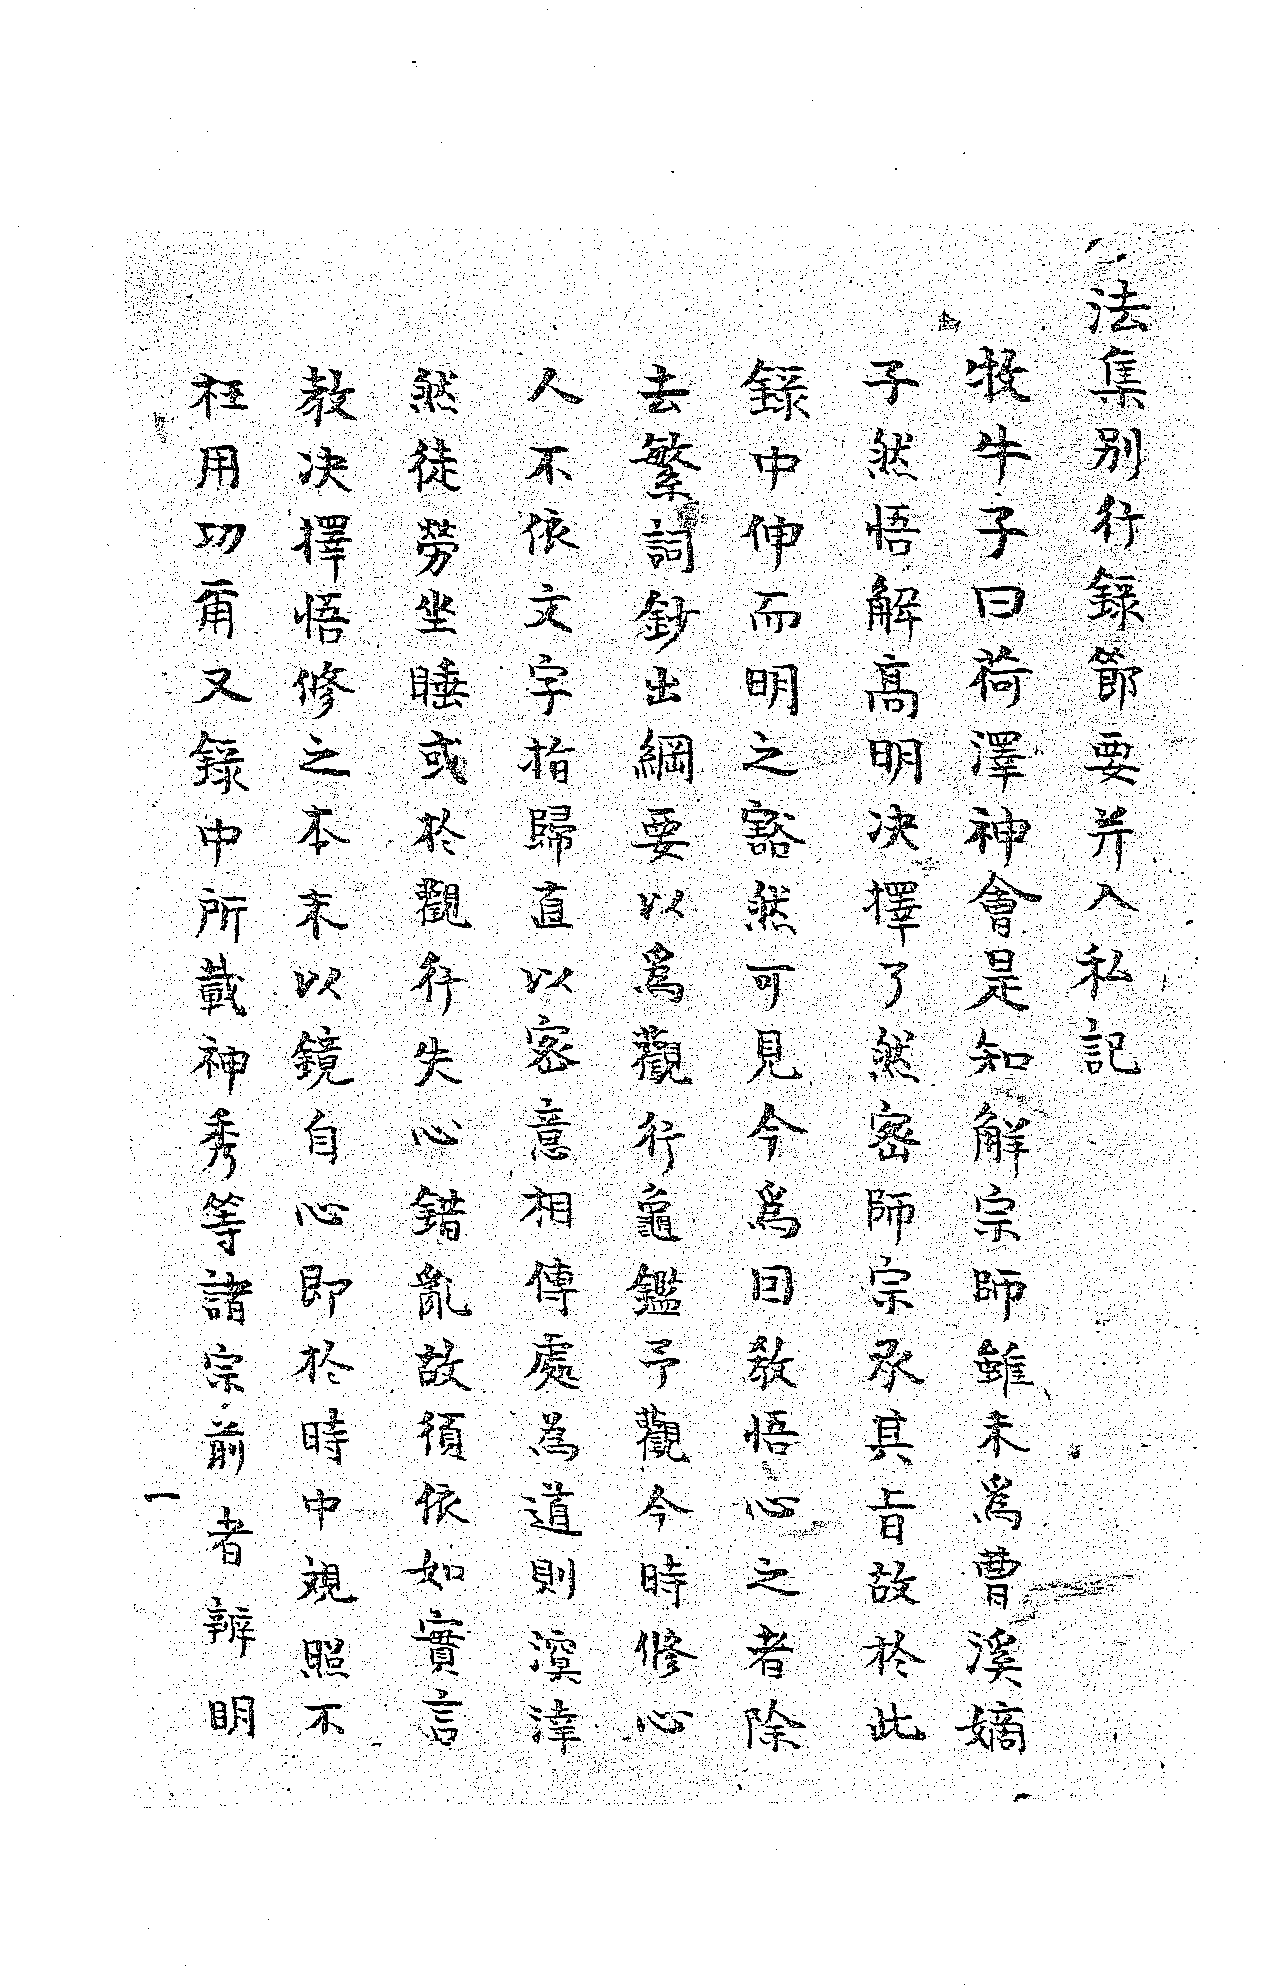 法集別行錄節要并入私記
牧牛子曰荷澤神會是知解宗師雖未爲曹溪嫡
子然悟解高明决擇了然密師宗承其旨故於此
錄中伸而明之豁然可見今爲因教悟心之者除
去繁詞鈔出綱要以爲觀行龜鑑予觀今時修心
人不依文字指歸直以密意相傳處為道則溟涬
然徒勞坐睡或於觀行失心錯亂故須依如實言
教决擇悟修之本末以鏡自心即於時中觀照不
枉用功爾又錄中所載神秀等諸宗前者辨明
一